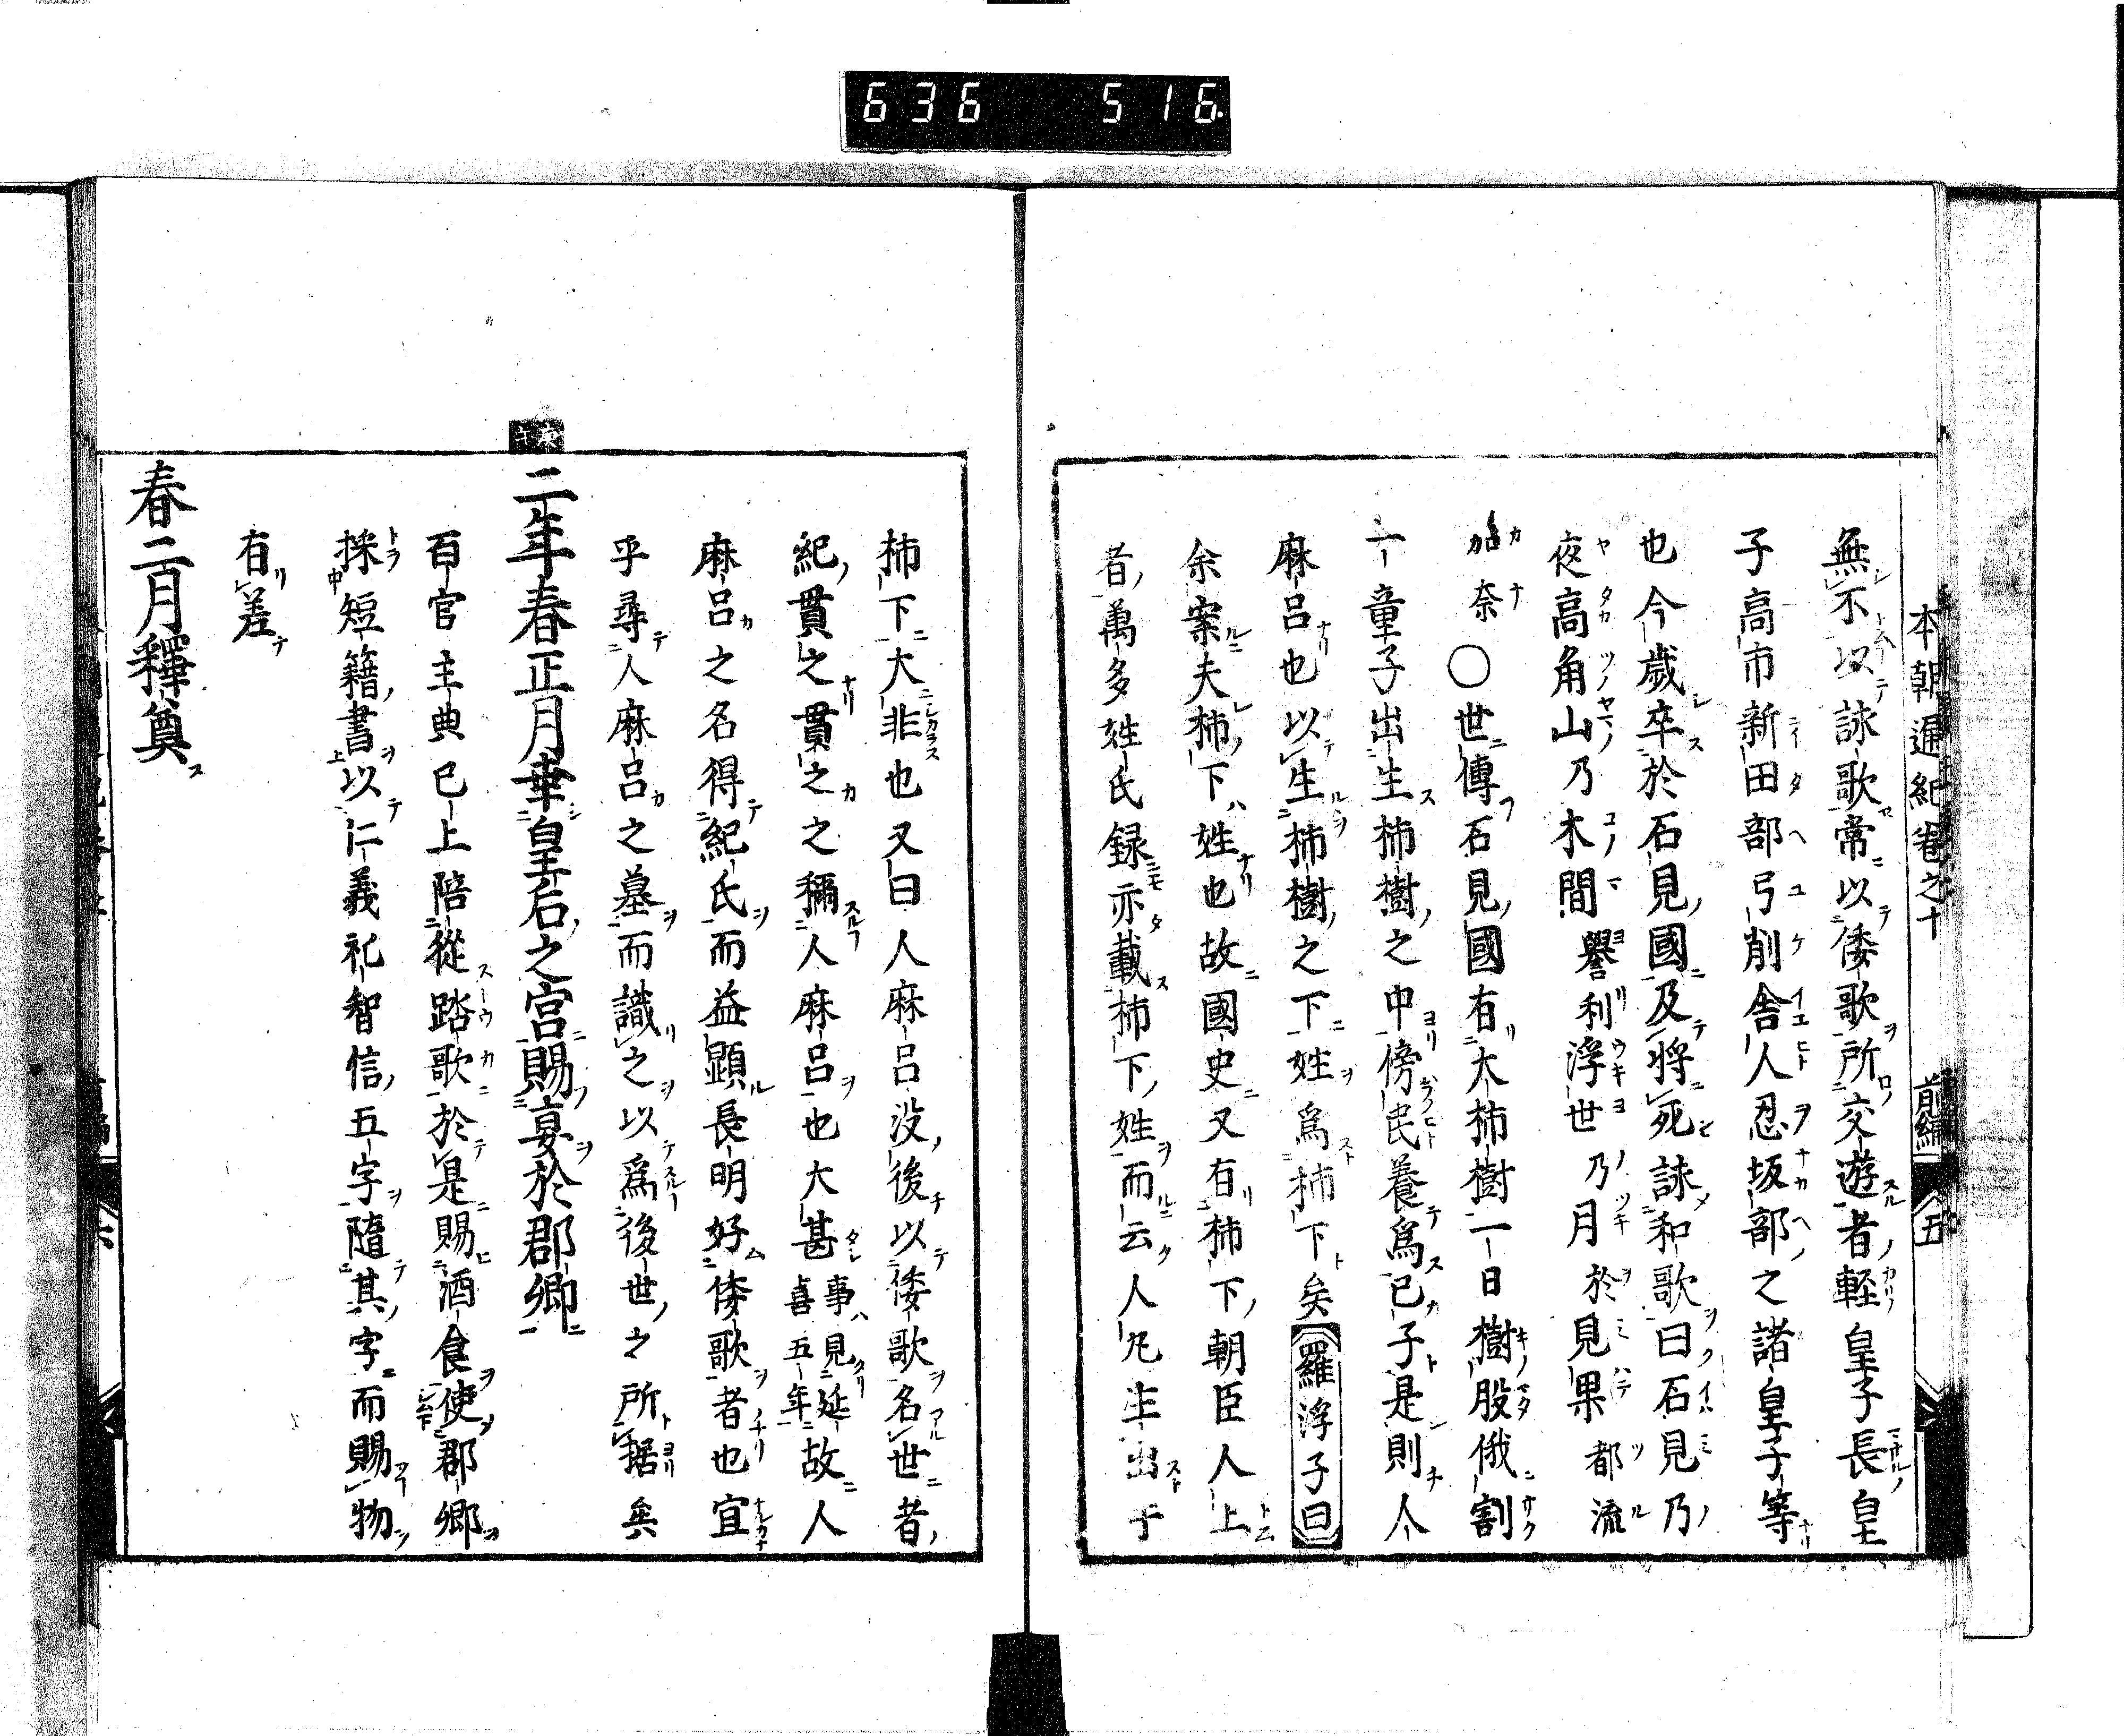 636 516
本朝通紀卷之十 前編 五
無不以詠歌常以倭歌所交遊者輕皇子長皇
子高市新田部弓削舎人忍坂部之諸皇子等
也今歲卒於石見國及將死詠和歌曰石見乃
夜高角山乃木間譽利浮世乃月於見果都流
加奈〇世傳石見國有大柿樹一日樹股俄割
一童子出生柿樹之中傍民養爲己子是則人
麻呂也以生柿樹之下姓爲柿下矣羅浮子曰
余案夫柿下姓也故國史又有柿下朝臣人上
者萬多姓氏録亦載柿下姓而云人凡生出于
柿下大非也又曰人麻呂沒後以倭歌名世者
紀貫之貫之之稱人麻呂也大甚事見延喜五年故人
麻呂之名得紀氏而益顕長明好倭歌者也宜
乎尋人麻呂之墓而識之以爲後世之所据矣
二年春正月幸皇后之宮賜宴於郡卿
百官主典已上陪從踏歌於是賜酒食使郡卿
採短籍書以仁義礼智信五字隨其字而賜物
有差
春二月釋奠